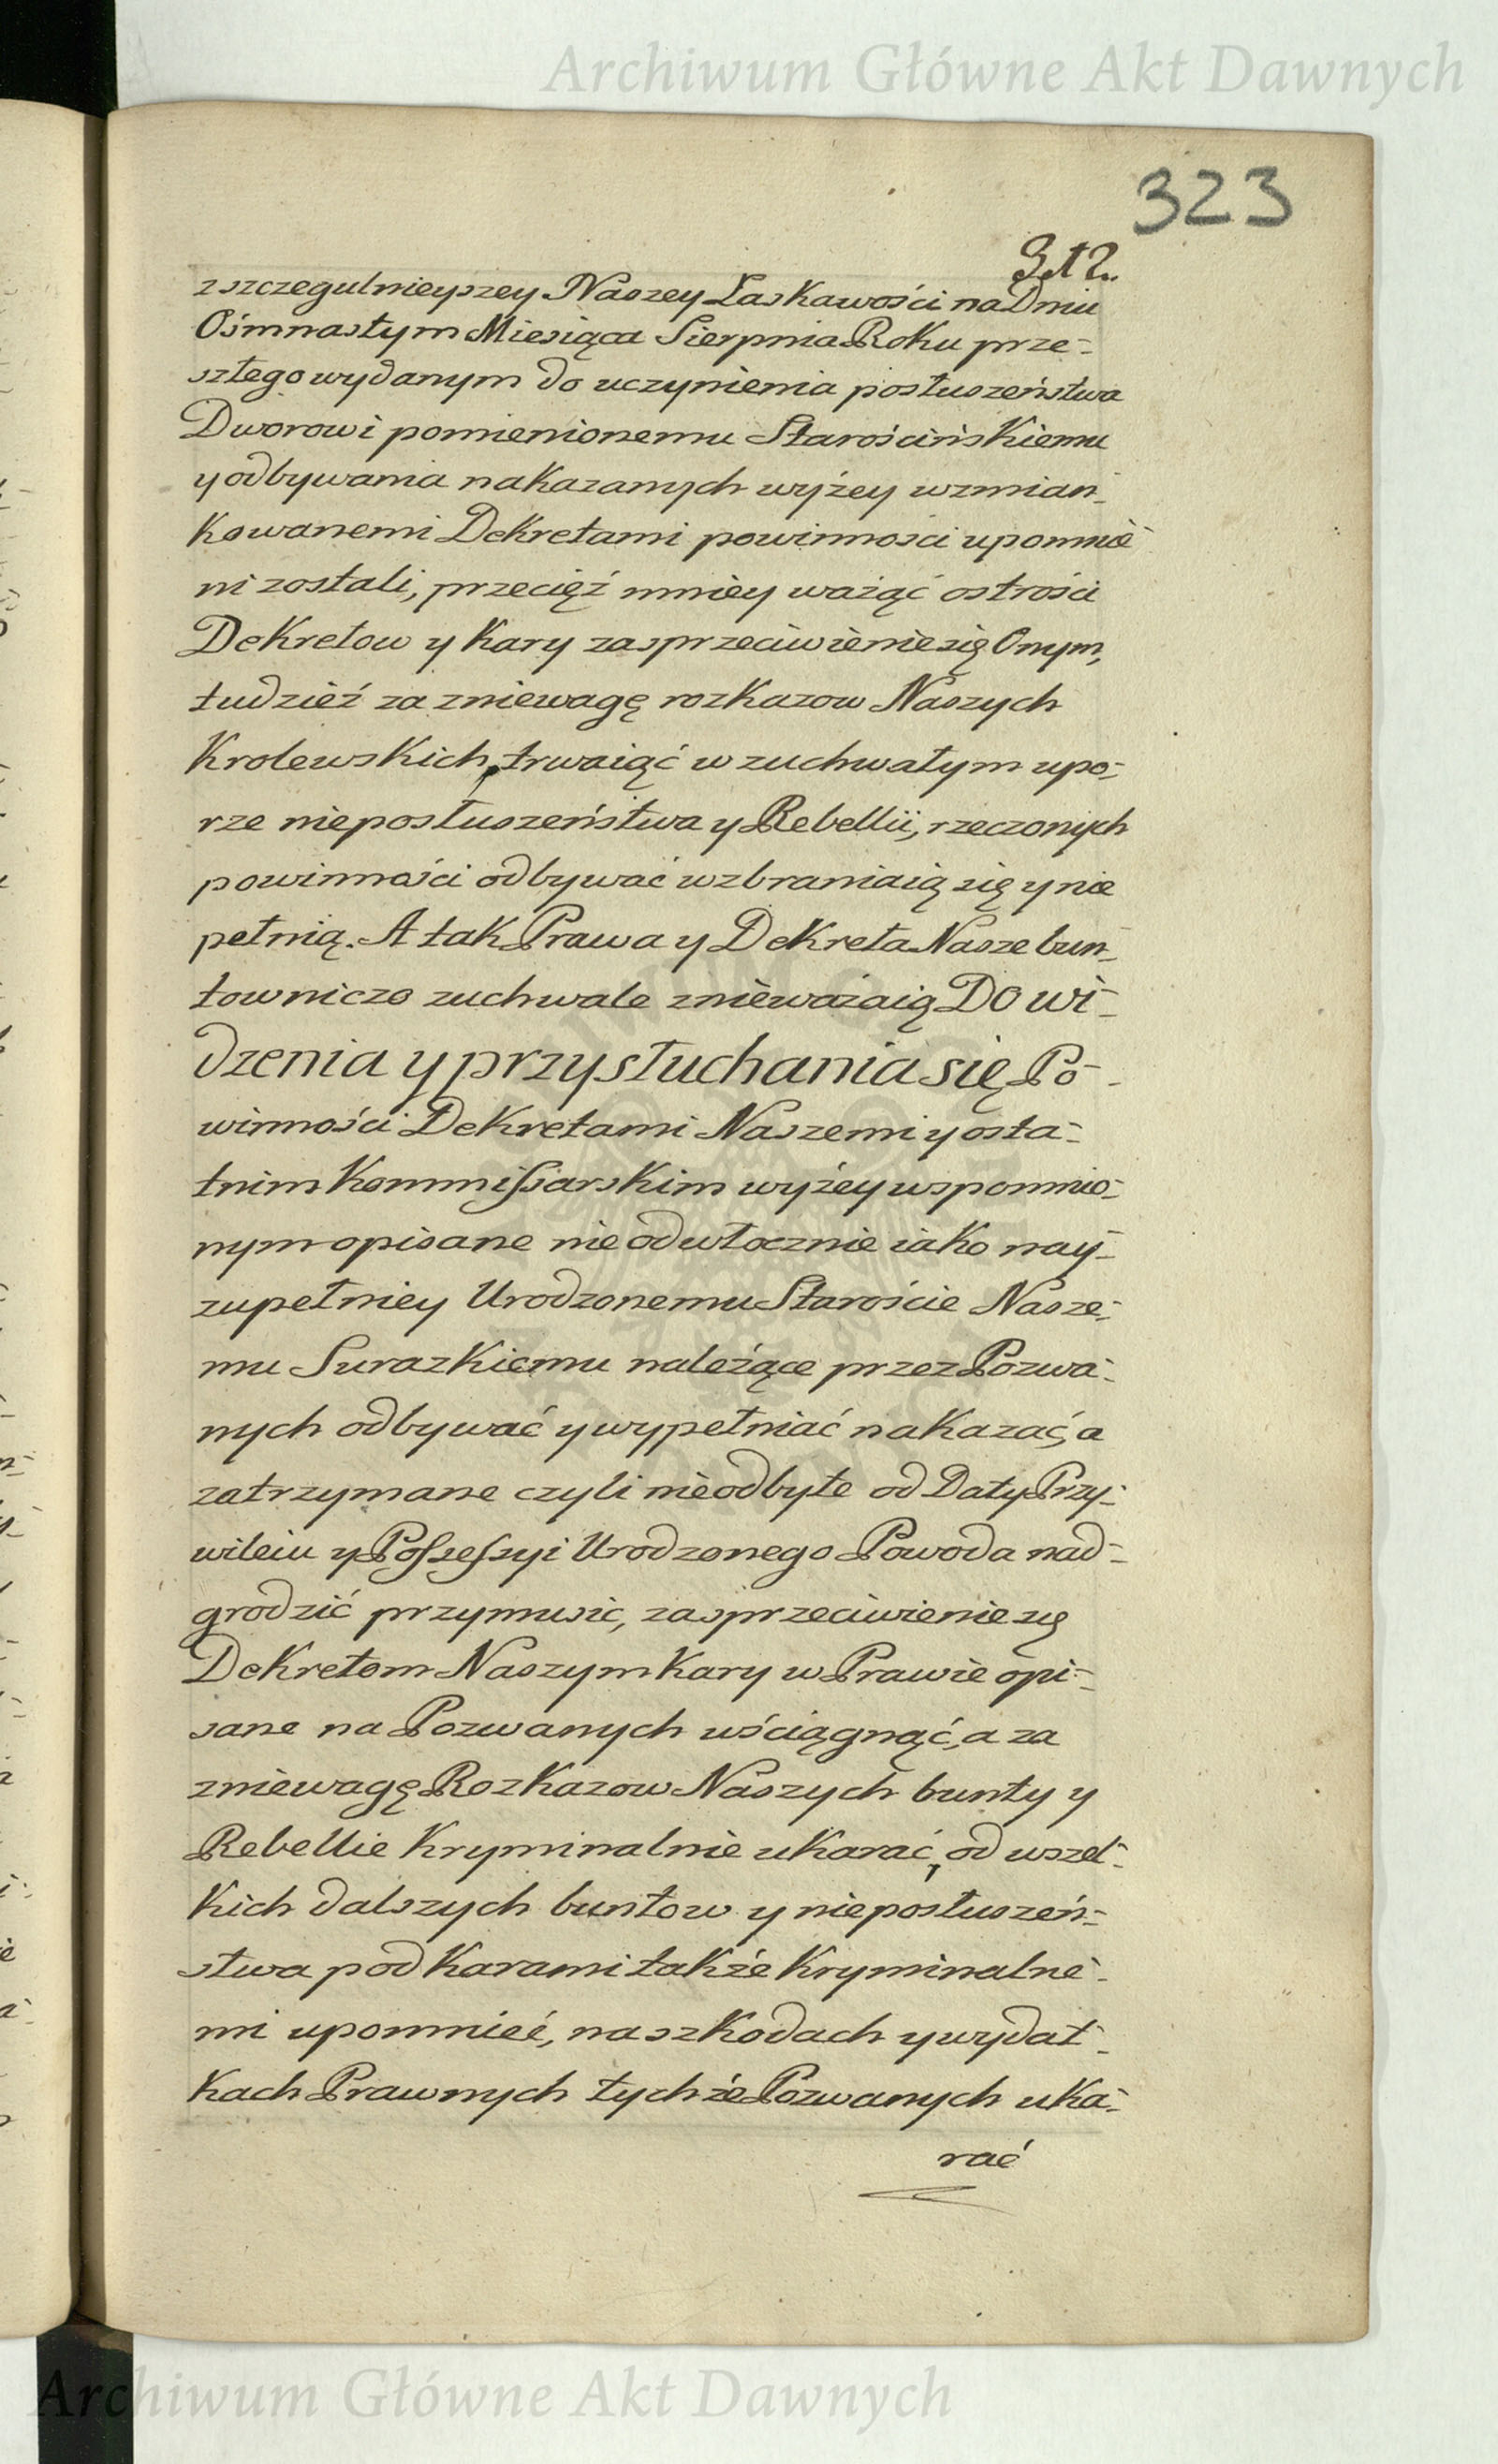 Archiwum Główne Akt Dawnych
323
z szczegulnieyszey Naszey Łaskawości na Dniu
Ośmnastym Miesiąca Sierpnia Roku prze-
szłego wydanym do uczynienia posłuszeństwa
Dworowi pomienionemu Starościńskiemu
y odbywania nakazanych wyżey wzmian-
kowanemi Dekretami powinności upomnie
ni zostali, przecięż mniey ważąć ostrości
Dekretow y kary za sprzeciwienie się Onym,
tudzież za zniewagę rozkazow Naszych
Krolewskich, trwaiąć w zuchwałym upo-
rze nieposłuszeństwa y Rebellii, rzeczonych
powinności odbywać wzbraniaią się y nie
pełnią. A tak Prawa y Dekreta Nasze bun-
towniczo zuchwale znieważaią Do wi-
dzenia y przysłuchania się Po-
winności Dekretami Naszemi y osta-
tnim Kommissiarskim wyżey wspomnio-
nym opisane nieodwłocznie iako nay-
zupełniey Urodzonemu Staroście Nasze-
mu Surazkiemu należące przez Pozwa-
nych odbywać y wypełniać nakazać, a
zatrzymane czyli nieodbyte od Daty Przy-
wileiu y Possessyi Urodzonego Powoda nad-
grodzić przymusic, za sprzeciwienie się
Dekretom Naszym kary w Prawie opi-
sane na Pozwanych wściągnąć, a za
zniewagę Rozkazow Naszych bunty y
Rebellie kryminalnie ukarać, od wszel-
kich dalszych buntow y nieposłuszeń-
stwa pod karami także kryminalne-
mi upomnieć, na szkodach y wydat-
kach Prawnych tychże Pozwanych uka-
rać
Archiwum Główne Akt Dawnych